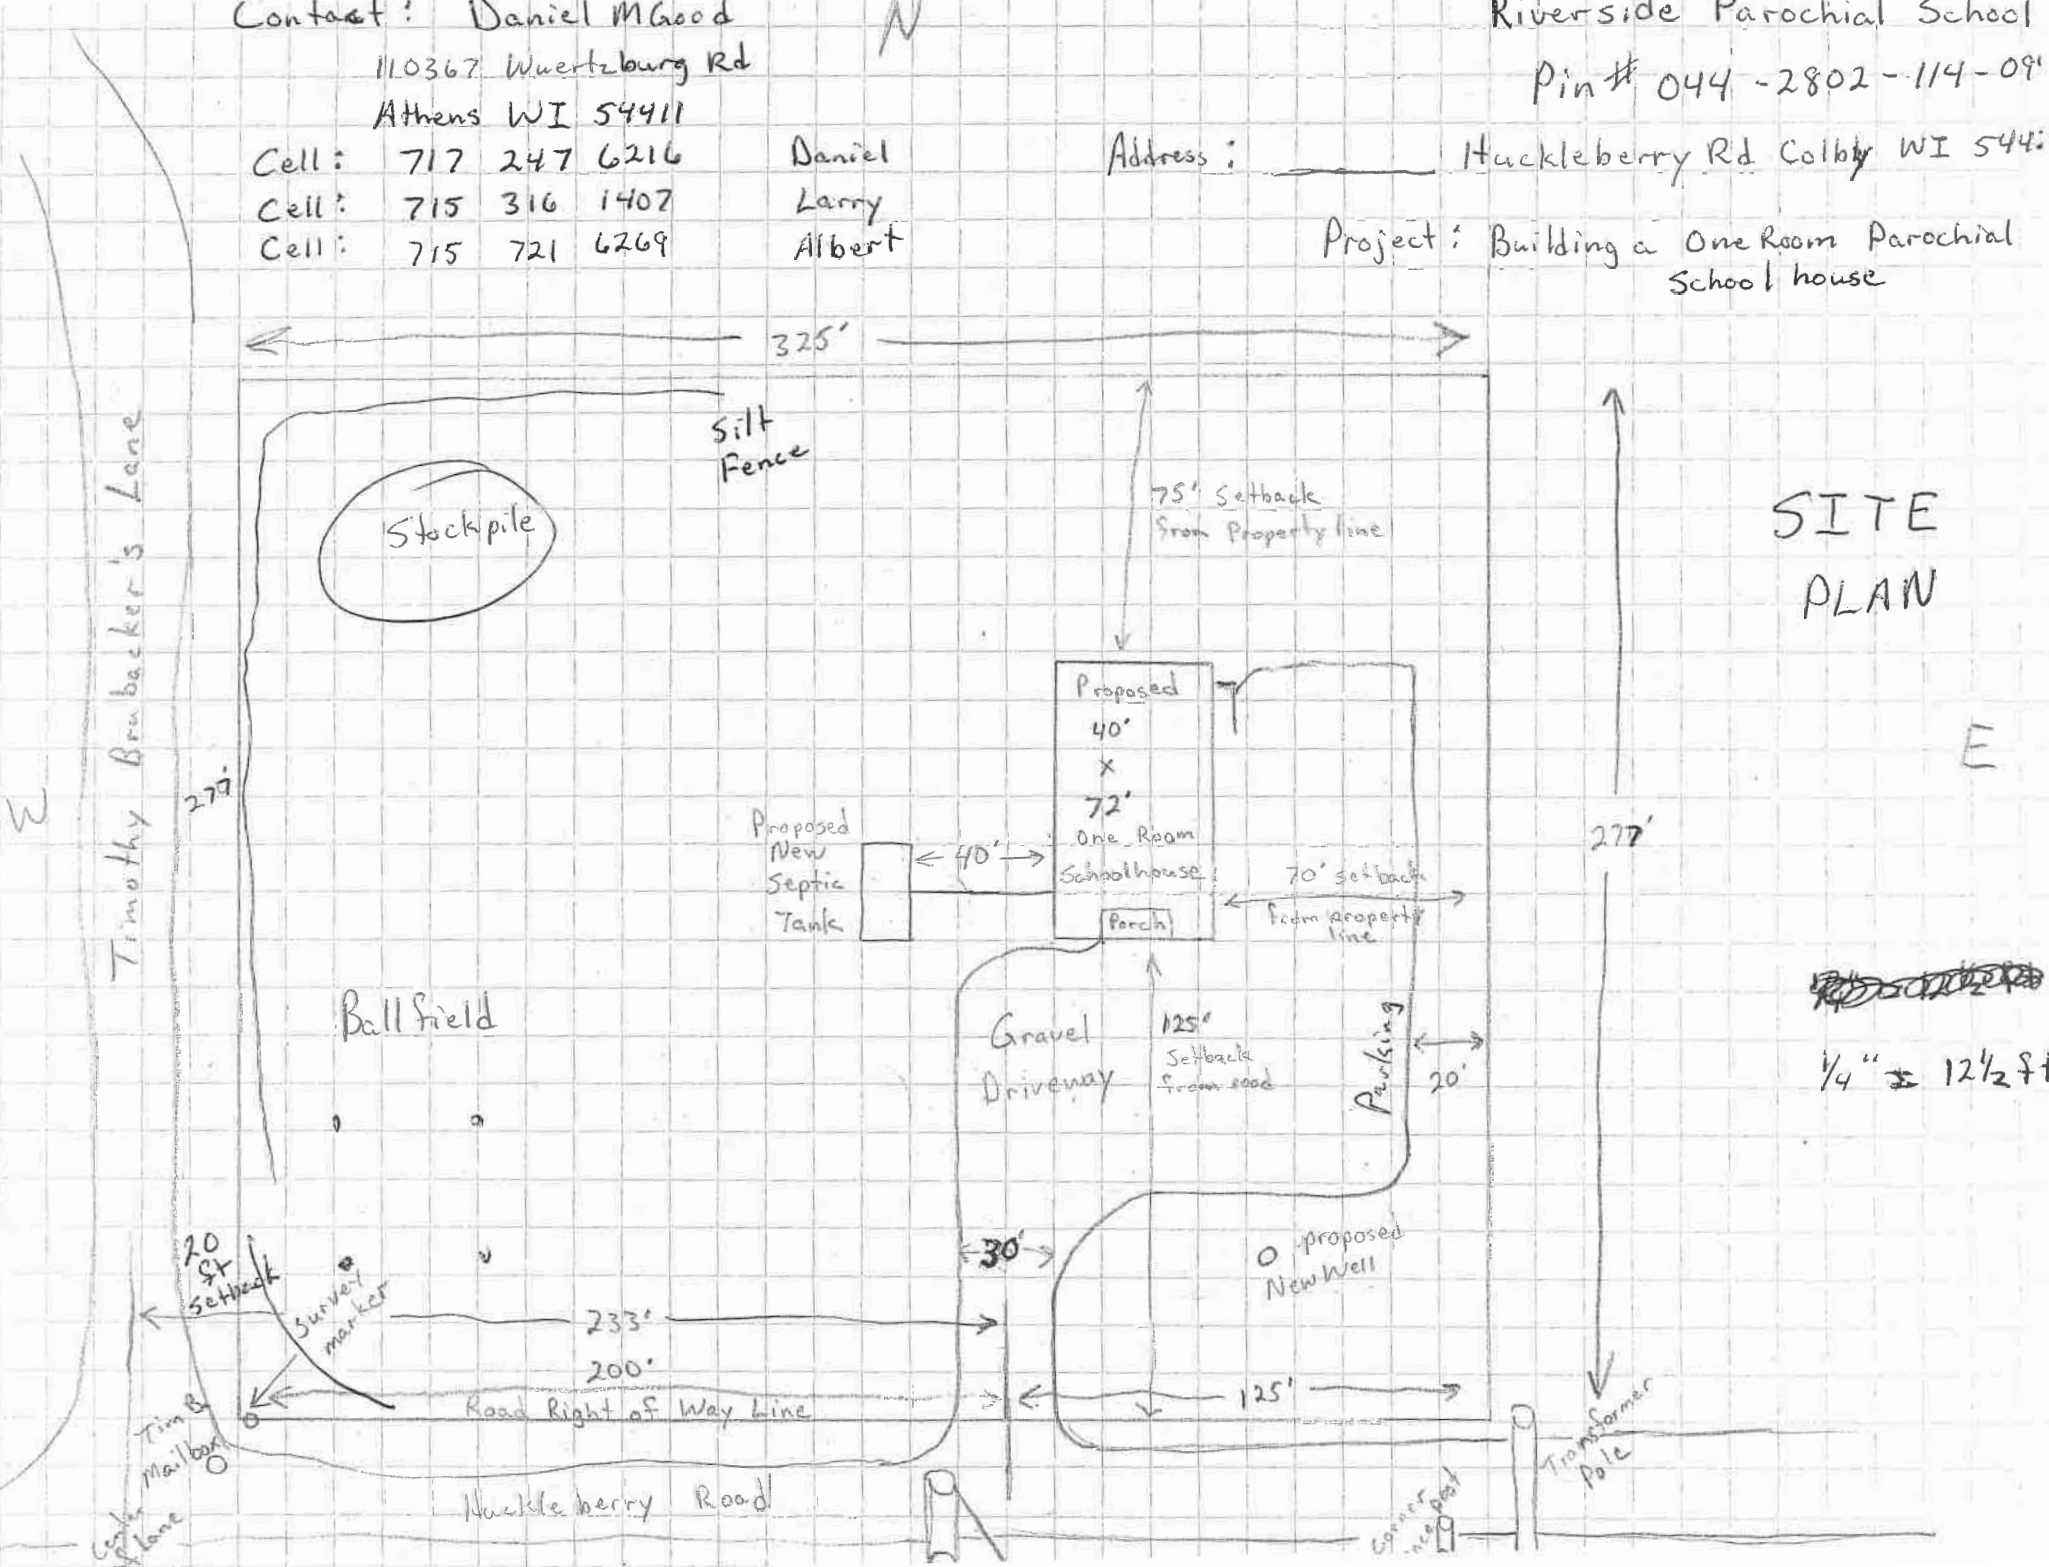 Contact: Daniel M Good
110367 Wuertzburg Rd
Athens WI 54411
Cell: 717 247 6216 Daniel
Cell: 715 316 1407 Larry
Cell: 715 721 6269 Albert
N
Riverside Parochial School
Pin# 044-2802-114-09
Address: ______ Huckleberry Rd Colby WI 544
Project: Building a One Room Parochial
School house
325'
Silt
Fence
Stockpile
75' Setback
from Property line
SITE
PLAN
Timothy Brubacker's Lane
W
E
279'
277'
Proposed
40'
x
72'
One Room
Schoolhouse
Porch
Proposed
New
Septic
Tank
40'
70' setback
from property
line
Ballfield
Gravel
Driveway
125'
Setback
from road
Parking
20'
1/4" = 12 1/2 ft
20
ft
setback
Survey
marker
30'
proposed
New Well
233'
200'
125'
Road Right of Way Line
Tim B
Mailbox
Center
Lane
Huckleberry Road
Corner
post
Transformer
Pole